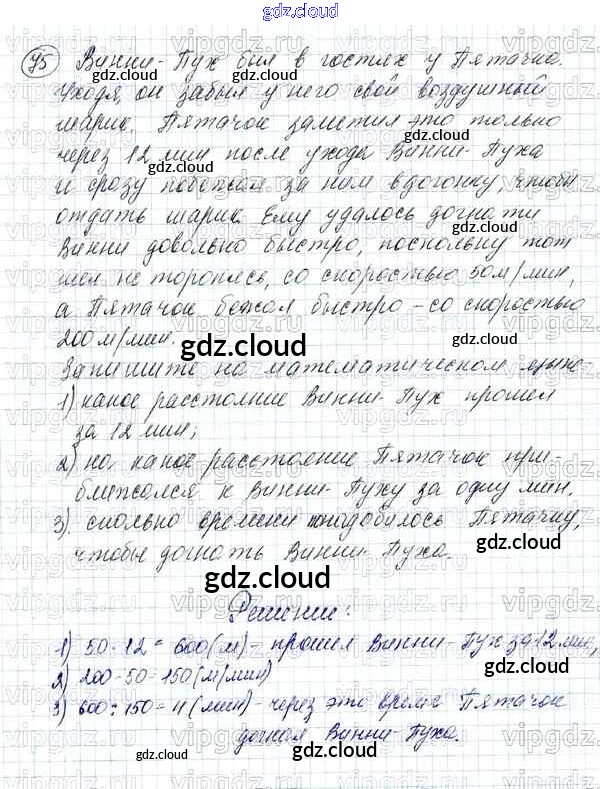 gdz.cloud
95 Винни-Пух был в гостях у Пятачка.
Уходя, он забыл у него свой воздушный
шарик. Пятачок заметил это только
через 12 мин после ухода Винни-Пуха
и сразу побежал за ним вдогонку, чтобы
отдать шарик. Ему удалось догнать
Винни довольно быстро, поскольку тот
шел не торопясь, со скоростью 50 м/мин,
а Пятачок бежал быстро - со скоростью
200 м/мин.
gdz.cloud
Запишите на математическом языке
1) какое расстояние Винни-Пух прошел
за 12 мин;
2) на какое расстояние Пятачок при-
ближался к Винни-Пуху за одну мин.
3) сколько времени понадобилось Пятачку,
чтобы догнать Винни-Пуха.
gdz.cloud
Решение:
1) 50·12 = 600(м) - прошел Винни-Пух за 12 мин,
2) 200-50=150(м/мин)
3) 600:150=4(мин) - через это время Пятачок
догнал Винни-Пуха.
gdz.cloud